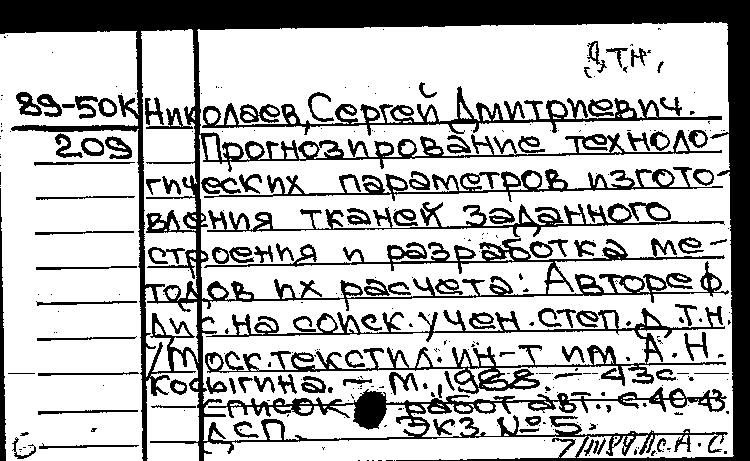 Д.Т.Н.
89-50К Николаев, Сергей Дмитриевич.
209 Прогнозирование техноло-
гических параметров изгото-
вления тканей заданного
строения и разработка ме-
тодов их расчета: Автореф.
Дис. на соиск. учен. степ. Д.Т.Н.
/Моск. текстил. ин-т им. А.Н.
Косыгина. – М., 1988. – 43с.
Список работ авт.: с. 40-43.
ДСП. Экз. № 5.